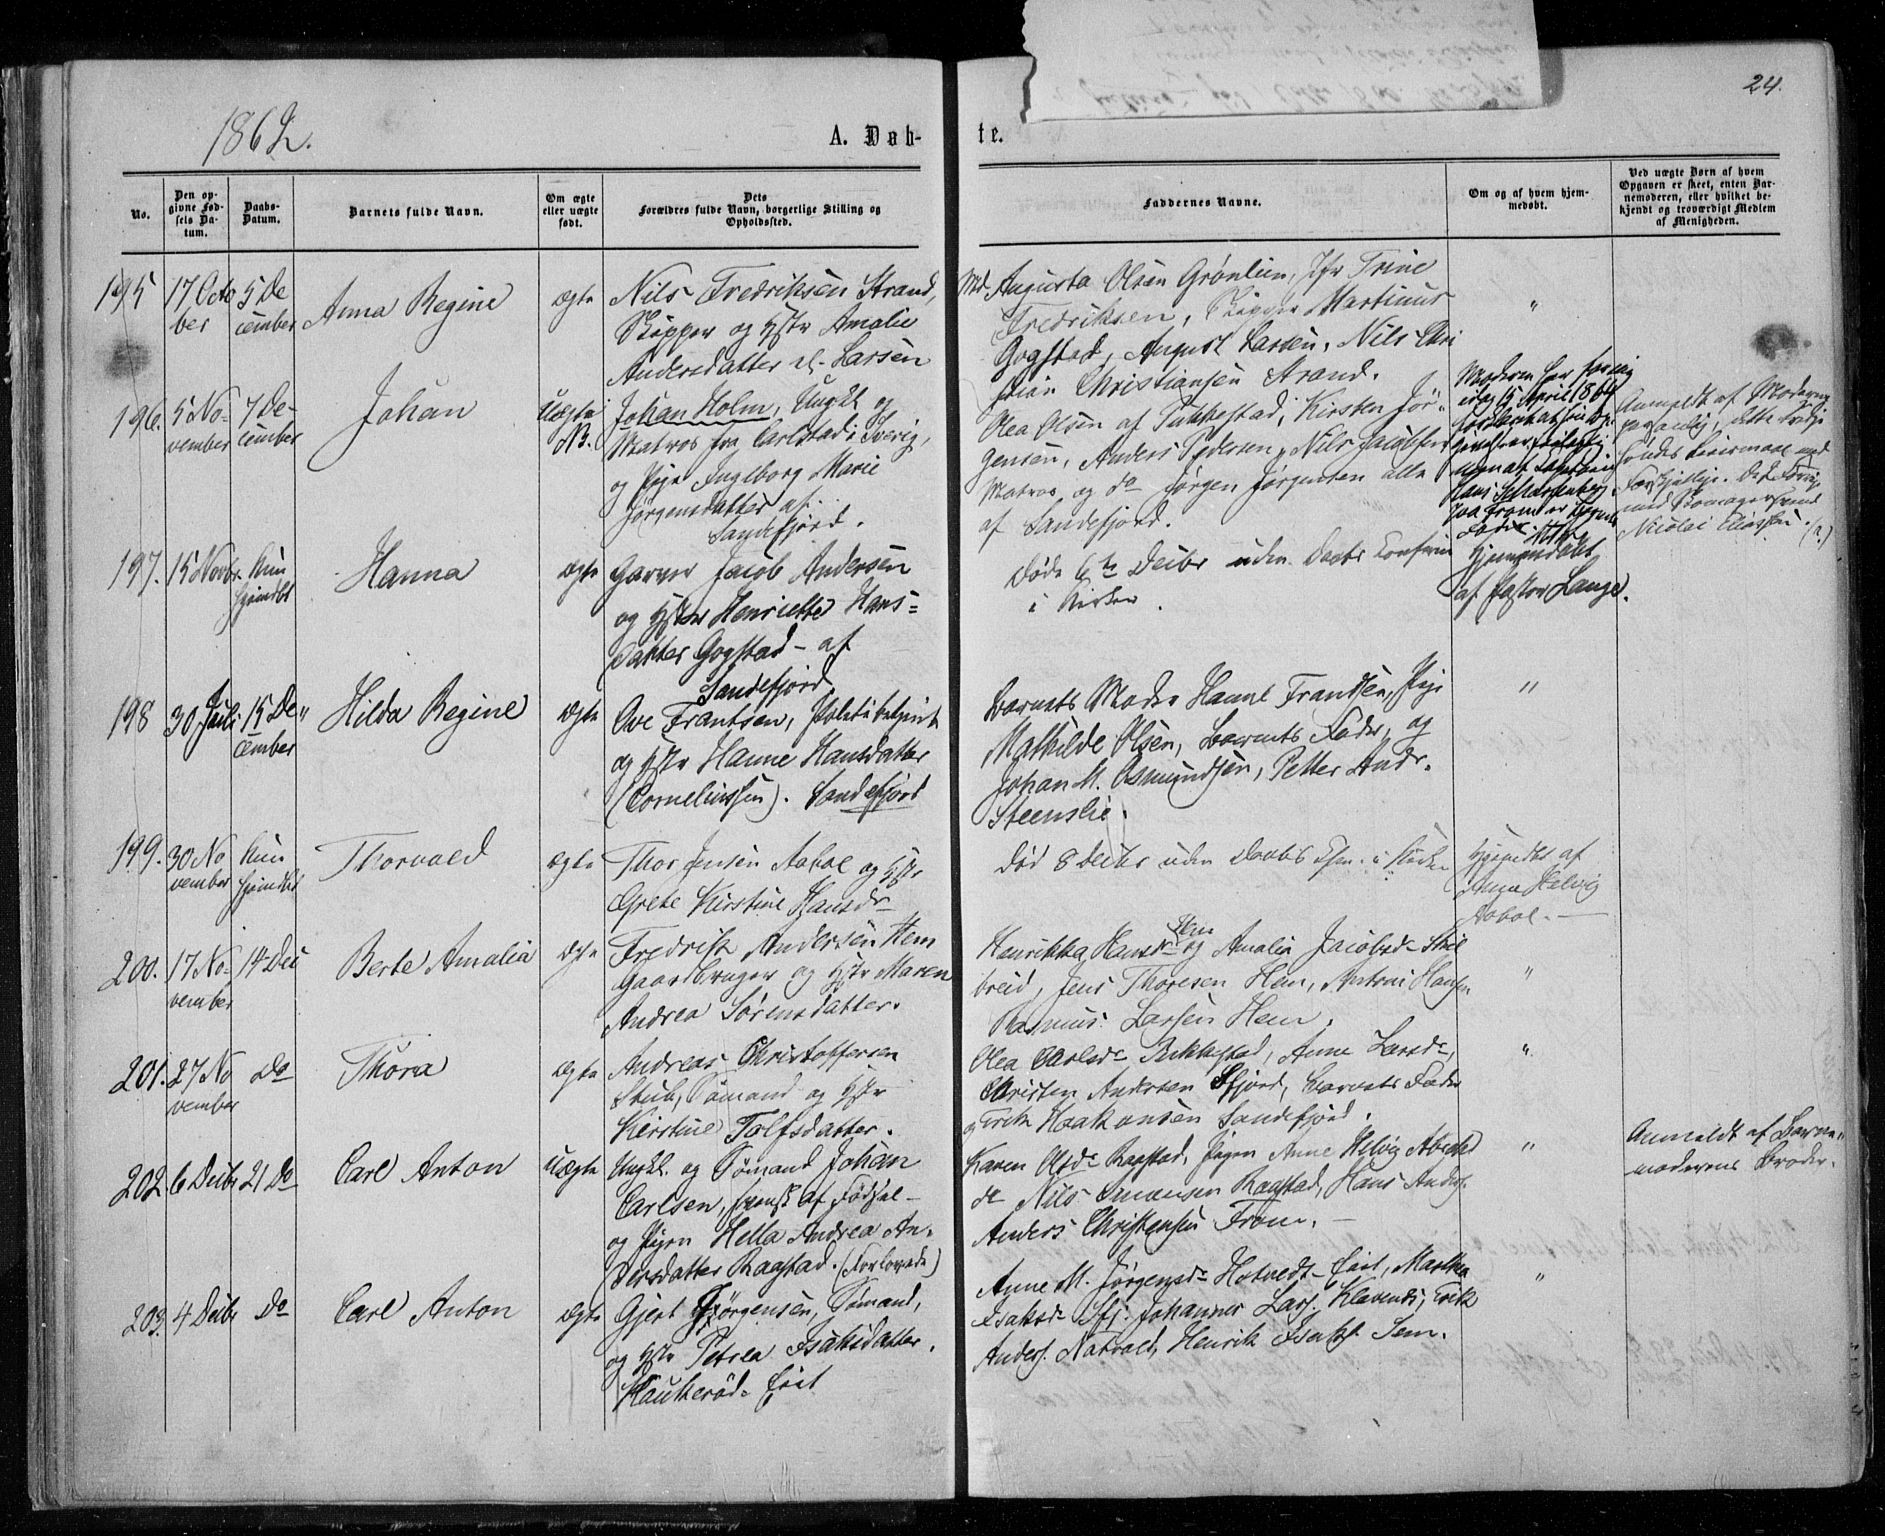 24.
1862.
A. Døb-
te.
No.
Den op-
givne Fød-
sels Da-
tum.
Daabs-
Datum.
Barnets fulde Navn.
Om ægte
eller uægte
født.
Dets
Forældres fulde Navn, borgerlige Stilling og
Opholdssted.
Faddernes Navne.
Om og af hvem hjem-
medøbt.
Ved uægte Børn af hvem
Opgaven er skeet, enten Bar-
nemoderen, eller hvilket be-
kjendt og troværdigt Medlem
af Menigheden.
195 17 Octo
ber
5 De
cember
Anna Regine
ægte
Nils Fredriksen Strand,
Skipper og Hstr Amalie
Andersdatter el. Larsen
Md. Augusta Olsen Grønlien, Jfr Trine
Fredriksen, Skipper Martinus
Gogstad, August Larsen, Nils Chri
stian Christiansen Strand.
"
196. 5 No-
vember
7 De-
cember
Johan
Uægte
NB.
Johan Holm, Ungkl og
Matros fra Carlstad i Sverig,
og Pige Ingeborg Marie
Jørgensdatter af
Sandefjord.
Olea Olsen af Pukkestad, Kirsten Jør-
gensen, Anders Pedersen, Nils Jacobsen
Matros, og do Jørgen Jørgensen alle
af Sandefjord.
Moderen har
idag 15 April 1864
Hans
paa Fram er
Fader.
Anmeldt af Moderen
dette tredje
Leiermaal med
Forskjellige. Det
med
Nicolai Eliassen. (2.)
197. 15 Novbr
kun
hjemdbt
Hanna
ægte
Garver Jacob Andersen
og Hstr Henriette Hans-
datter Gogstad - af
Sandefjord
Døde 6te Decbr uden Daabs Confirm
i Kirken.
Hjemmedøbt
af Pastor Lange.
198 30 Juli
15 De-
cember
Hilda Regine
ægte
Ove Frantsen, Politibetjent
og Hstr Hanne Hansdatter
(Corneliussen). Sandefjord
Barnets Moder Hanne Frandsen, Pige
Mathilde Olsen, Barnets Fader, og
Johan M. Osmundsen, Petter Andr.
Steenslie.
"
199. 30 No
vember
kun
hjemdbt
Thorvald
ægte
Thor Jensen Aabol og Hstr
Grete Kirstine Hansdr
Død 8 Decbr uden Daabs i Kirken
Hjemdbt af
Helvig
Aabol. —
200. 17 No-
vember
14 Dec
Berte Amalia
ægte
Fredrik Andersen Hem
Gaardbruger og Hstr Maren
Andrea Sørensdatter.
Henrikka Hansdr Hem og Amalia Jacobsdr
Jens Thoresen Hem, Antoni Hansen
Rasmus Larsen Hem.
"
201. 27 No
vember
Do
Thora
ægte
Andreas Christoffersen
Stub, Sømand og Hstr
Kirstine Tolfsdatter.
Olea Carlsdr Pukkestad, Anne Larsdr,
Christen Andersen Sfjord, Barnets Fader
og Erik Haakonsen Sandefjord.
"
202. 6 Decbr 21 Do
Carl Anton
Uægte
Ungkl. og Sømand Johan
Carlsen, svensk af Fødsel -
og Pigen Hella Andrea An-
dersdatter Raastad. (Forlovede)
Karen Olsdr Raastad, Pigen Anne Helvig
Nils Raastad, Hans Anders.
Anders Christensen Fram. —
"
Anmeldt af Barne-
moderens Broder.
203. 4 Decbr Do
Carl Anton
ægte
Gjert Jørgensen, Sømand,
og Hstr Petrea Isaksdatter,
Haukerød-
Anne M. Jørgensdr Hotvedt- Martha
Isaksdr Sfj. Johannes Lars. Klavenæs, Erik
Anders. Natvald, Henrik Isaks. Sem.
"